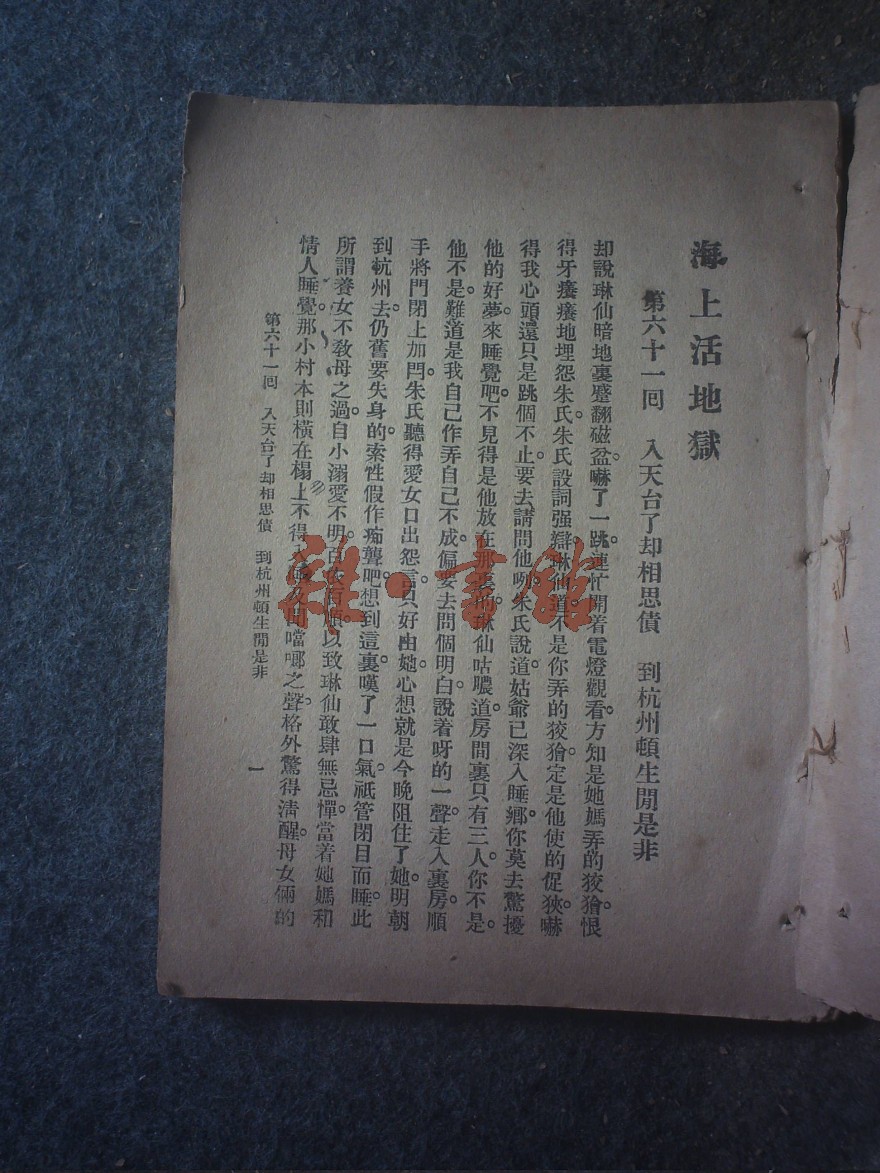 海上活地獄
第六十一回　入天台了却相思債　到杭州頓生閒是非
却說琳仙暗地裏蹩翻磁盆。嚇了一跳。連忙開着電燈觀看。方知是她媽弄的狡獪。恨
得牙癢癢地埋怨朱氏。朱氏設詞强辯。琳仙道。不是你弄的狡獪。定是他使的促狹。嚇
得我心頭還只是跳個不止。要去請問他咧。朱氏說道。姑爺已深入睡鄉。你莫去驚擾
他的好夢。來睡覺吧。不見得是他放在那裏的。琳仙咕膿道。房間裏只有三人。你不是。
他不是。難道是我自己作弄自己不成。偏要去問個明白。說着呀的一聲。走入裏房。順
手將門閉上加閂。朱氏聽得愛女口出怨言。只好由她。心想就是今晚阻住了。她明朝
到杭州去。仍舊要失身的。索性假作痴聾吧。想到這裏。嘆了一口氣。祇管閉目而睡。此
所謂養女不敎母之過。自小溺愛不明。百依百順。以致琳仙敢肆無忌憚。當着她媽和
情人睡覺。那小村本則橫在榻上。不得入
聞噹啷之聲。格外驚得淸醒。母女倆的
第六十一回　入天台了却相思債　到杭州頓生閒是非
一
雜·書館